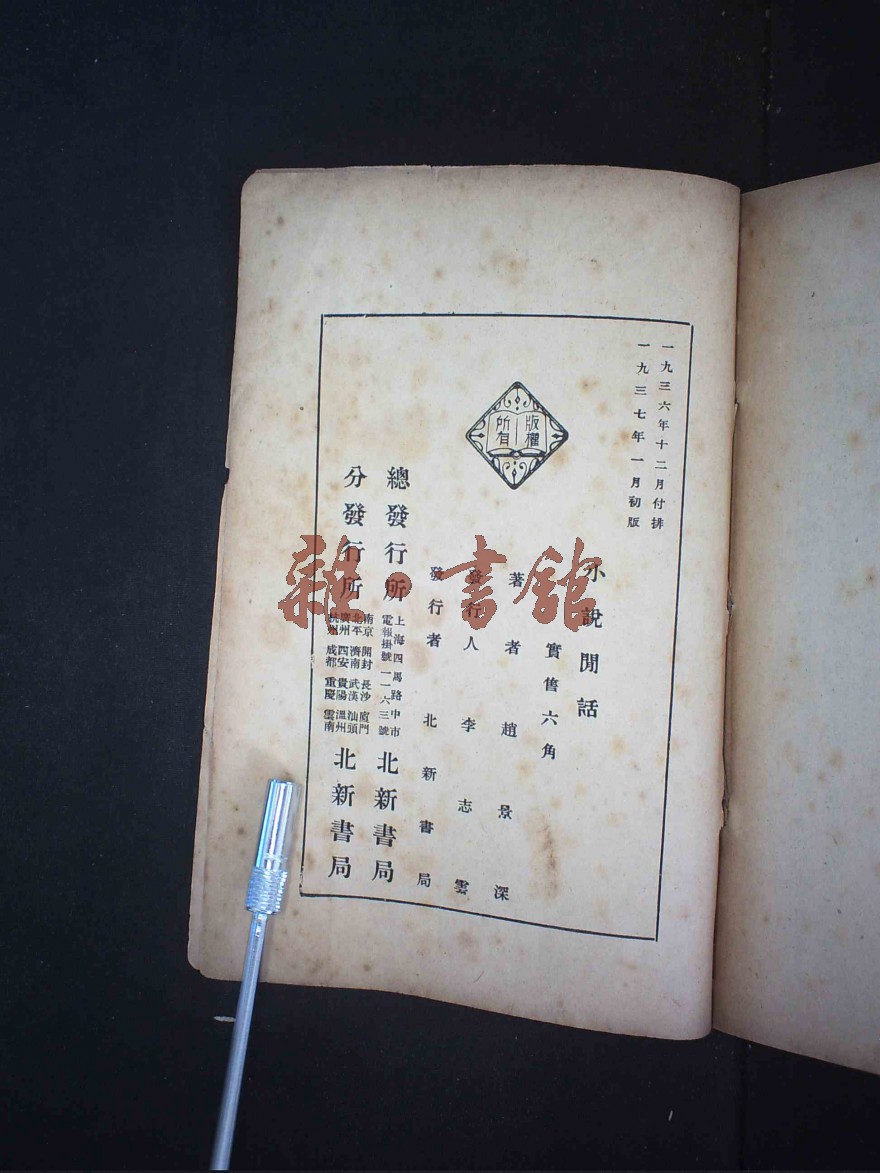 一九三六年十二月付排
一九三七年一月初版
版權
所有
小說閒話
實售六角
著者 趙景深
發行人 李志雲
發行者 北新書局
總發行所 上海四馬路中市 電報掛號一一六三號 北新書局
分發行所 南京 開封 長沙 廈門 北平 濟南 武漢 汕頭 廣州 西安 貴陽 溫州 杭州 成都 重慶 雲南 北新書局
雜·書館